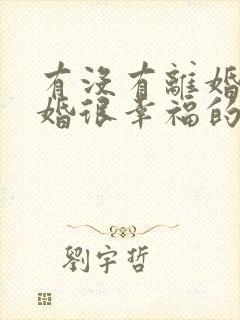 有沒有離婚
婚很幸福的
劉宇哲